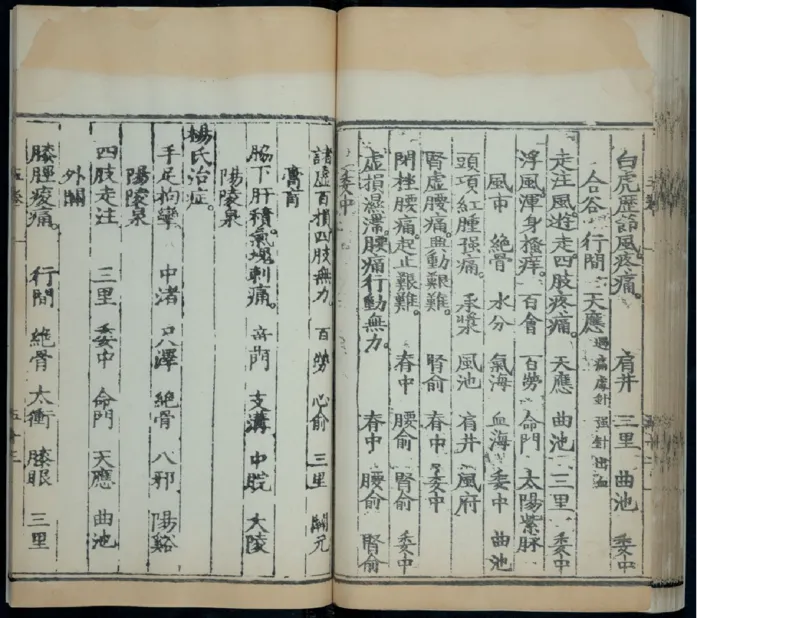 白虎歷節風疼痛。 肩井 三里 曲池 委中
合谷 行間 天應 遇痛處針 强針出血
走注風遊走四肢疼痛。 天應 曲池 三里 委中
浮風渾身搔痒。 百會 百勞 命門 太陽紫脉
風市 絶骨 水分 氣海 血海 委中 曲池
頭項紅腫强痛。 承漿 風池 肩井 風府
腎虛腰痛。興動艱難。 腎俞 脊中 委中
閃挫腰痛。起止艱難。 脊中 腰俞 腎俞 委中
虛損濕滯。腰痛行動無力。 脊中 腰俞 腎俞
委中
諸虛百損四肢無力 百勞 心俞 三里 關元
膏肓
脇下肝積。氣塊刺痛。 章門 支溝 中脘 大陵
陽陵泉
楊氏治症。
手足拘攣 中渚 尺澤 絶骨 八邪 陽谿
陽陵泉
四肢走注 三里 委中 命門 天應 曲池
外關
膝脛痠痛。 行間 絶骨 太衝 膝眼 三里